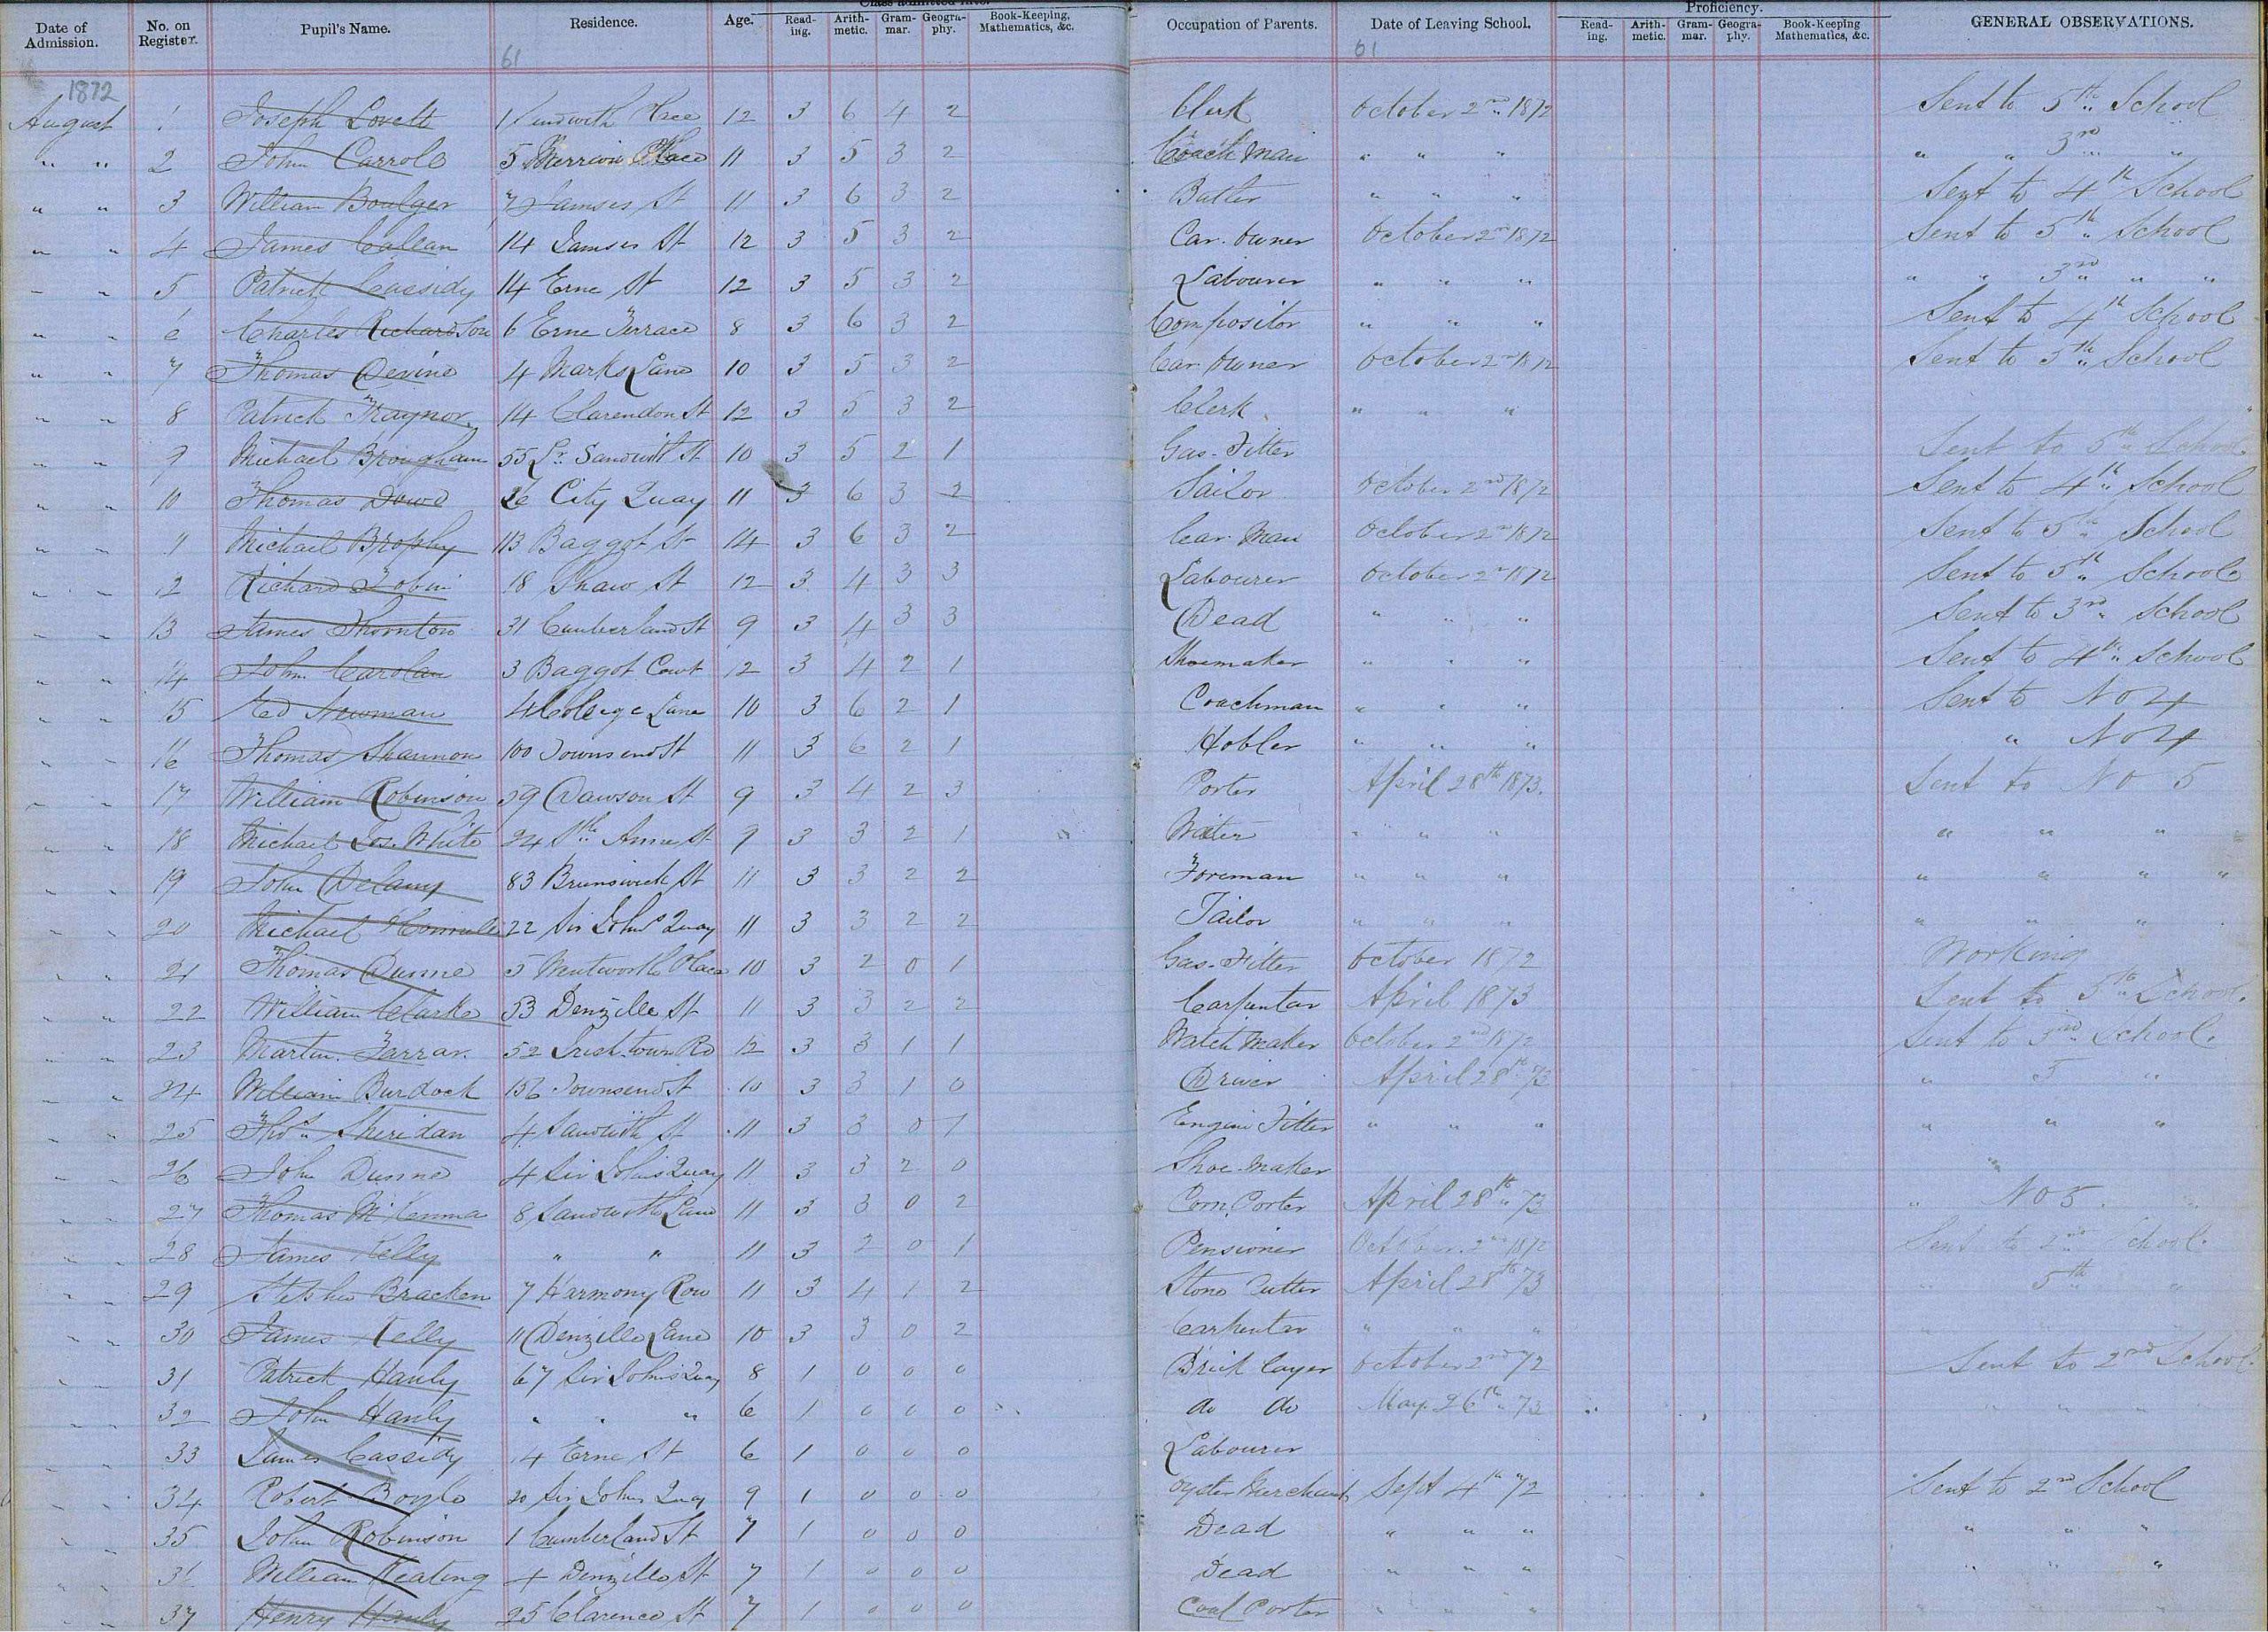 Class admitted into.
Proficiency.
Date of Admission. No. on Register. Pupil's Name. Residence. Age. Read-ing. Arith-metic. Gram-mar. Geogra-phy. Book-Keeping, Mathematics, &c. Occupation of Parents. Date of Leaving School. Read-ing. Arith-metic. Gram-mar. Geogra-phy. Book-Keeping Mathematics, &c. GENERAL OBSERVATIONS.
61 61
1872
August 1 Joseph Lovett 1 Place 12 3 6 4 2 Clerk October 2nd 1872 Sent to 5th School
" " 2 John Carroll 5 Merrion Place 11 3 5 3 2 Coach Man " " " " " 3rd "
" " 3 William Boulger 7 St 11 3 6 3 2 Butler " " " Sent to 4th School
" " 4 James 14 St 12 3 5 3 2 Car. Owner October 2nd 1872 Sent to 5th School
" " 5 Patrick Cassidy 14 Erne St 12 3 5 3 2 Labourer " " " " " 3rd " "
" " 6 Charles Richardson 6 Erne Terrace 8 3 6 3 2 Compositor " " " Sent to 4th School
" " 7 Thomas Devine 4 Marks Lane 10 3 5 3 2 Car. Owner October 2nd 1872 Sent to 5th School
" " 8 Patrick Traynor 14 Clarendon St 12 3 5 3 2 Clerk " " "
" " 9 Michael Brougham 55 Lr. Sandwith St 10 3 5 2 1 Gas-Fitter Sent to 5th School
" " 10 Thomas Dowd 26 City Quay 11 3 6 3 2 Sailor October 2nd 1872 Sent to 4th School
" " 11 Michael Brophy 113 Baggot St 14 3 6 3 2 Car. Man October 2nd 1872 Sent to 5th School
" " 12 Richard Tobin 18 Shaw St 12 3 4 3 3 Labourer October 2nd 1872 Sent to 5th School
" " 13 James Thornton 31 Cumberland St 9 3 4 3 3 Dead " " " Sent to 3rd School
" " 14 John Carolan 3 Baggot Court 12 3 4 2 1 Shoemaker " " " Sent to 4th School
" " 15 Ed Newman 4 College Lane 10 3 6 2 1 Coachman " " " Sent to No 4
" " 16 Thomas Shannon 100 Townsend St 11 3 6 2 1 Hobler " " " " No 4
" " 17 William Robinson 59 Dawson St 9 3 4 2 3 Porter April 28th 1873. Sent to No 5
" " 18 Michael Jos. White 24 Sth Anne St 9 3 3 2 1 Waiter " " " " " "
" " 19 John Delany 83 Brunswick St 11 3 3 2 2 Foreman " " " " " " "
" " 20 Michael 22 Sir Johns Quay 11 3 3 2 2 Tailor " " " " " "
" " 21 Thomas Dunne 5 Wentworth Place 10 3 2 0 1 Gas-Fitter October 1872 Working
" " 22 William Clarke 53 Denzille St 11 3 3 2 2 Carpenter April 1873 Sent to 5th School.
" " 23 Martin Farrar. 52 Irishtown Rd 12 3 3 1 1 Watch Maker October 2nd 1872 Sent to School.
" " 24 William Burdock 156 Townsend St 10 3 3 1 0 Driver April 28th 73 " 5 "
" " 25 Thos. Sheridan 4 Sandwith St 11 3 3 0 1 Engine Fitter " " " " " "
" " 26 John Dunne 4 Sir Johns Quay 11 3 3 2 0 Shoe-maker "
" " 27 Thomas McKenna 8 Sandwith Lane 11 3 3 0 2 Corn Porter April 28th 73 " No 5.
" " 28 James Kelly " " 11 3 2 0 1 Pensioner October 2nd 1872 Sent to 2nd School.
" " 29 Stephen Bracken 7 Harmony Row 11 3 4 1 2 Stone Cutter April 28th 73 " 5th "
" " 30 James Kelly 11 Denzille Lane 10 3 3 0 2 Carpenter " " "
" " 31 Patrick Hanly 67 Sir John's Quay 8 1 0 0 0 Brick layer October 2nd 72 Sent to 2nd School.
" " 32 John Hanly " " " 6 1 0 0 0 do do May 26th 73 " " "
" " 33 James Cassidy 14 Erne St 6 1 0 0 0 Labourer
" " 34 Robert Boyle 20 Sir Johns Quay 9 1 0 0 0 Oyster Merchant Sept 4th 72 Sent to 2nd School
" " 35 John Robinson 1 Cumberland St 7 1 0 0 0 Dead " " " " " "
" " 36 William Keating 4 Denzille St 7 1 0 0 0 Dead " " " " " "
" " 37 Henry Hanly 25 Clarence St 7 1 0 0 0 Coal Porter " " "